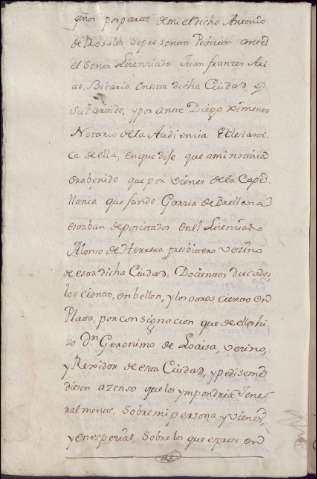 años por parte de mi el dicho Antonio
de Rosales se presento Peticion ante
el Señor Licenciado Juan Frances
Vicario en esta dicha Ciudad y
su Partido, y por ante Diego Ximenes
Notario de la Audiencia Eclesiasti-
ca de ella, en que dijo que a mi noticia
era benido que por vienes de la Cape-
llania que fundo Garcia de Orellana
estaban depositados en el Licenciado
Alonso de Herrera presbitero vezino
de esta dicha Ciudad, Docientos Ducados,
los ciento, en bellon, y los otros ciento en
Plata, por consignacion que de ellos hi-
zo Dn Geronimo de Loaisa, vezino,
y Rexidor de esta Ciudad, y pedi se me
diesen a zenso que los ympondria gene-
ralmente, sobre mi persona, y vienes,
y en especial, sobre los que espreso en